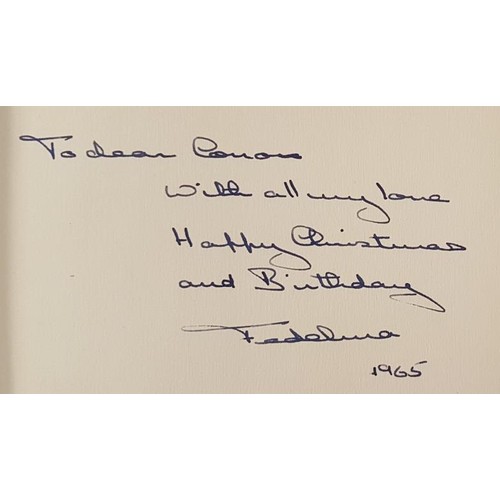 To dear Conor
With all my love
Happy Christmas
and Birthday
Fedelma
1965